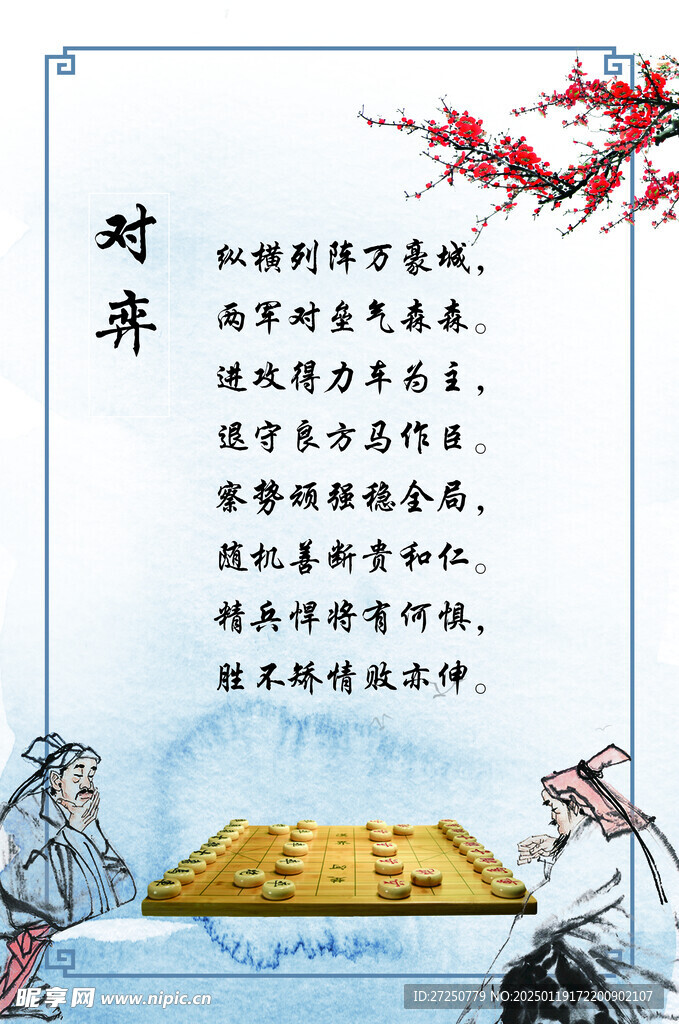 对弈
纵横列阵万豪城，
两军对垒气森森。
进攻得力车为主，
退守良方马作臣。
察势顽强稳全局，
随机善断贵和仁。
精兵悍将有何惧，
胜不矫情败亦伸。
昵享网 www.nipic.cn
ID:27250779 NO:20250119172200902107